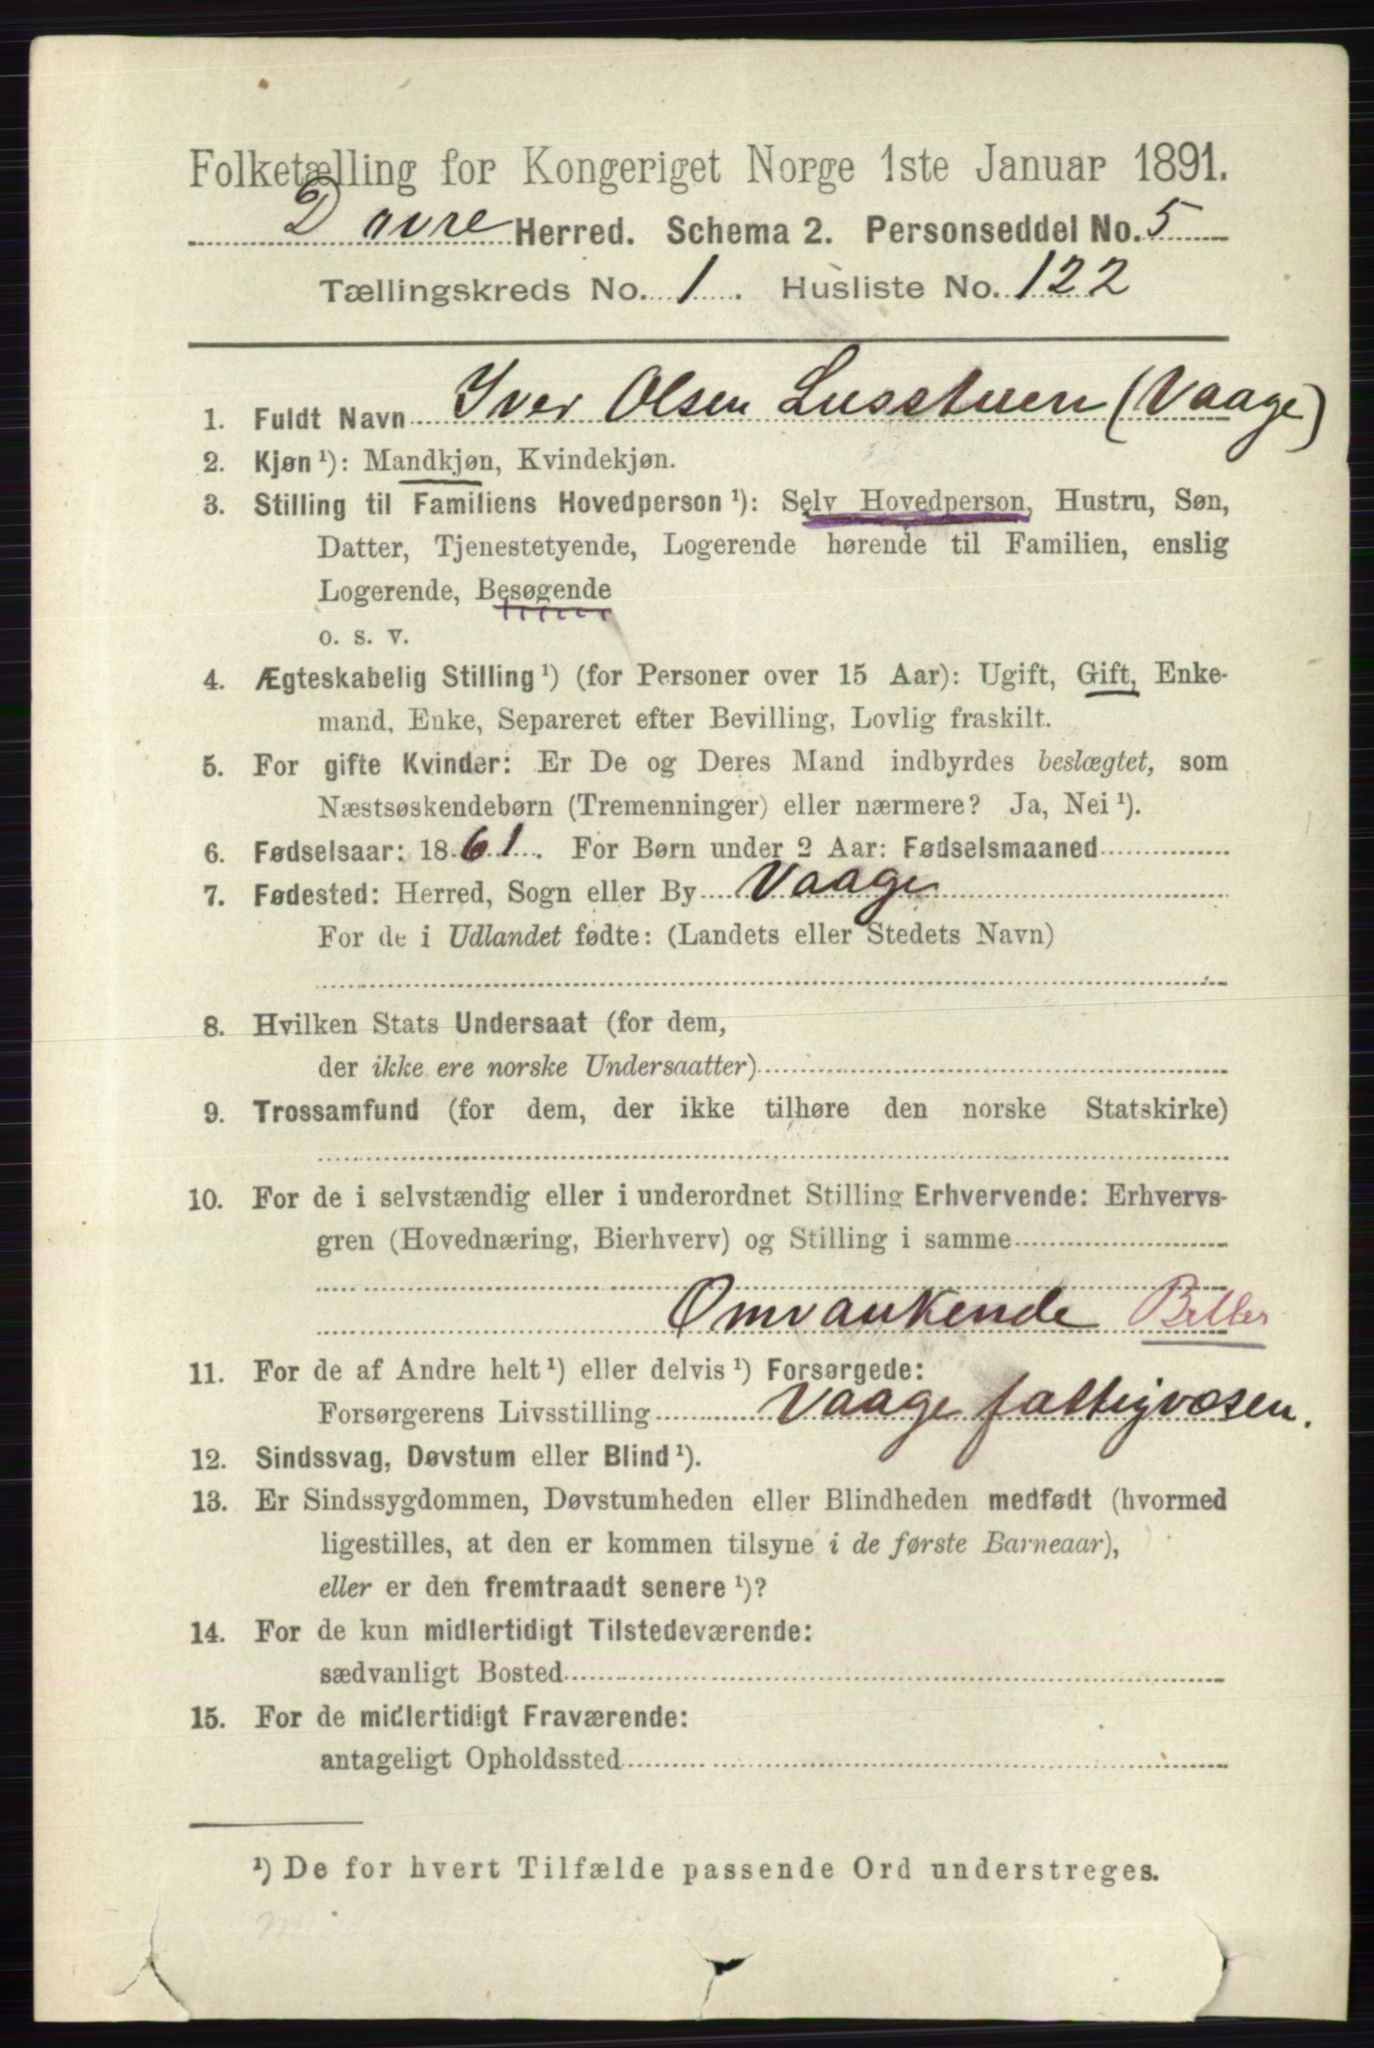 Folketælling for Kongeriget Norge 1ste Januar 1891.
Dovre Herred. Schema 2. Personseddel No. 5
Tællingskreds No. 1. Husliste No. 122
1. Fuldt Navn Iver Olsen Lusstuen (Vaage)
2. Kjøn ¹): Mandkjøn, Kvindekjøn.
3. Stilling til Familiens Hovedperson ¹): Selv Hovedperson, Hustru, Søn,
Datter, Tjenestetyende, Logerende hørende til Familien, enslig
Logerende, Besøgende
o. s. v.
4. Ægteskabelig Stilling ¹) (for Personer over 15 Aar): Ugift, Gift, Enke-
mand, Enke, Separeret efter Bevilling, Lovlig fraskilt.
5. For gifte Kvinder: Er De og Deres Mand indbyrdes beslægtet, som
Næstsøskendebørn (Tremenninger) eller nærmere? Ja, Nei ¹).
6. Fødselsaar: 1861. For Børn under 2 Aar: Fødselsmaaned
7. Fødested: Herred, Sogn eller By Vaage
For de i Udlandet fødte: (Landets eller Stedets Navn)
8. Hvilken Stats Undersaat (for dem,
der ikke ere norske Undersaatter)
9. Trossamfund (for dem, der ikke tilhøre den norske Statskirke)
10. For de i selvstændig eller i underordnet Stilling Erhvervende: Erhvervs-
gren (Hovednæring, Bierhverv) og Stilling i samme
Omvankende Betler
11. For de af Andre helt ¹) eller delvis ¹) Forsørgede:
Forsørgerens Livsstilling Vaage fattigvæsen.
12. Sindssvag, Døvstum eller Blind ¹).
13. Er Sindssygdommen, Døvstumheden eller Blindheden medfødt (hvormed
ligestilles, at den er kommen tilsyne i de første Barneaar),
eller er den fremtraadt senere ¹)?
14. For de kun midlertidigt Tilstedeværende:
sædvanligt Bosted
15. For de midlertidigt Fraværende:
antageligt Opholdssted
¹) De for hvert Tilfælde passende Ord understreges.